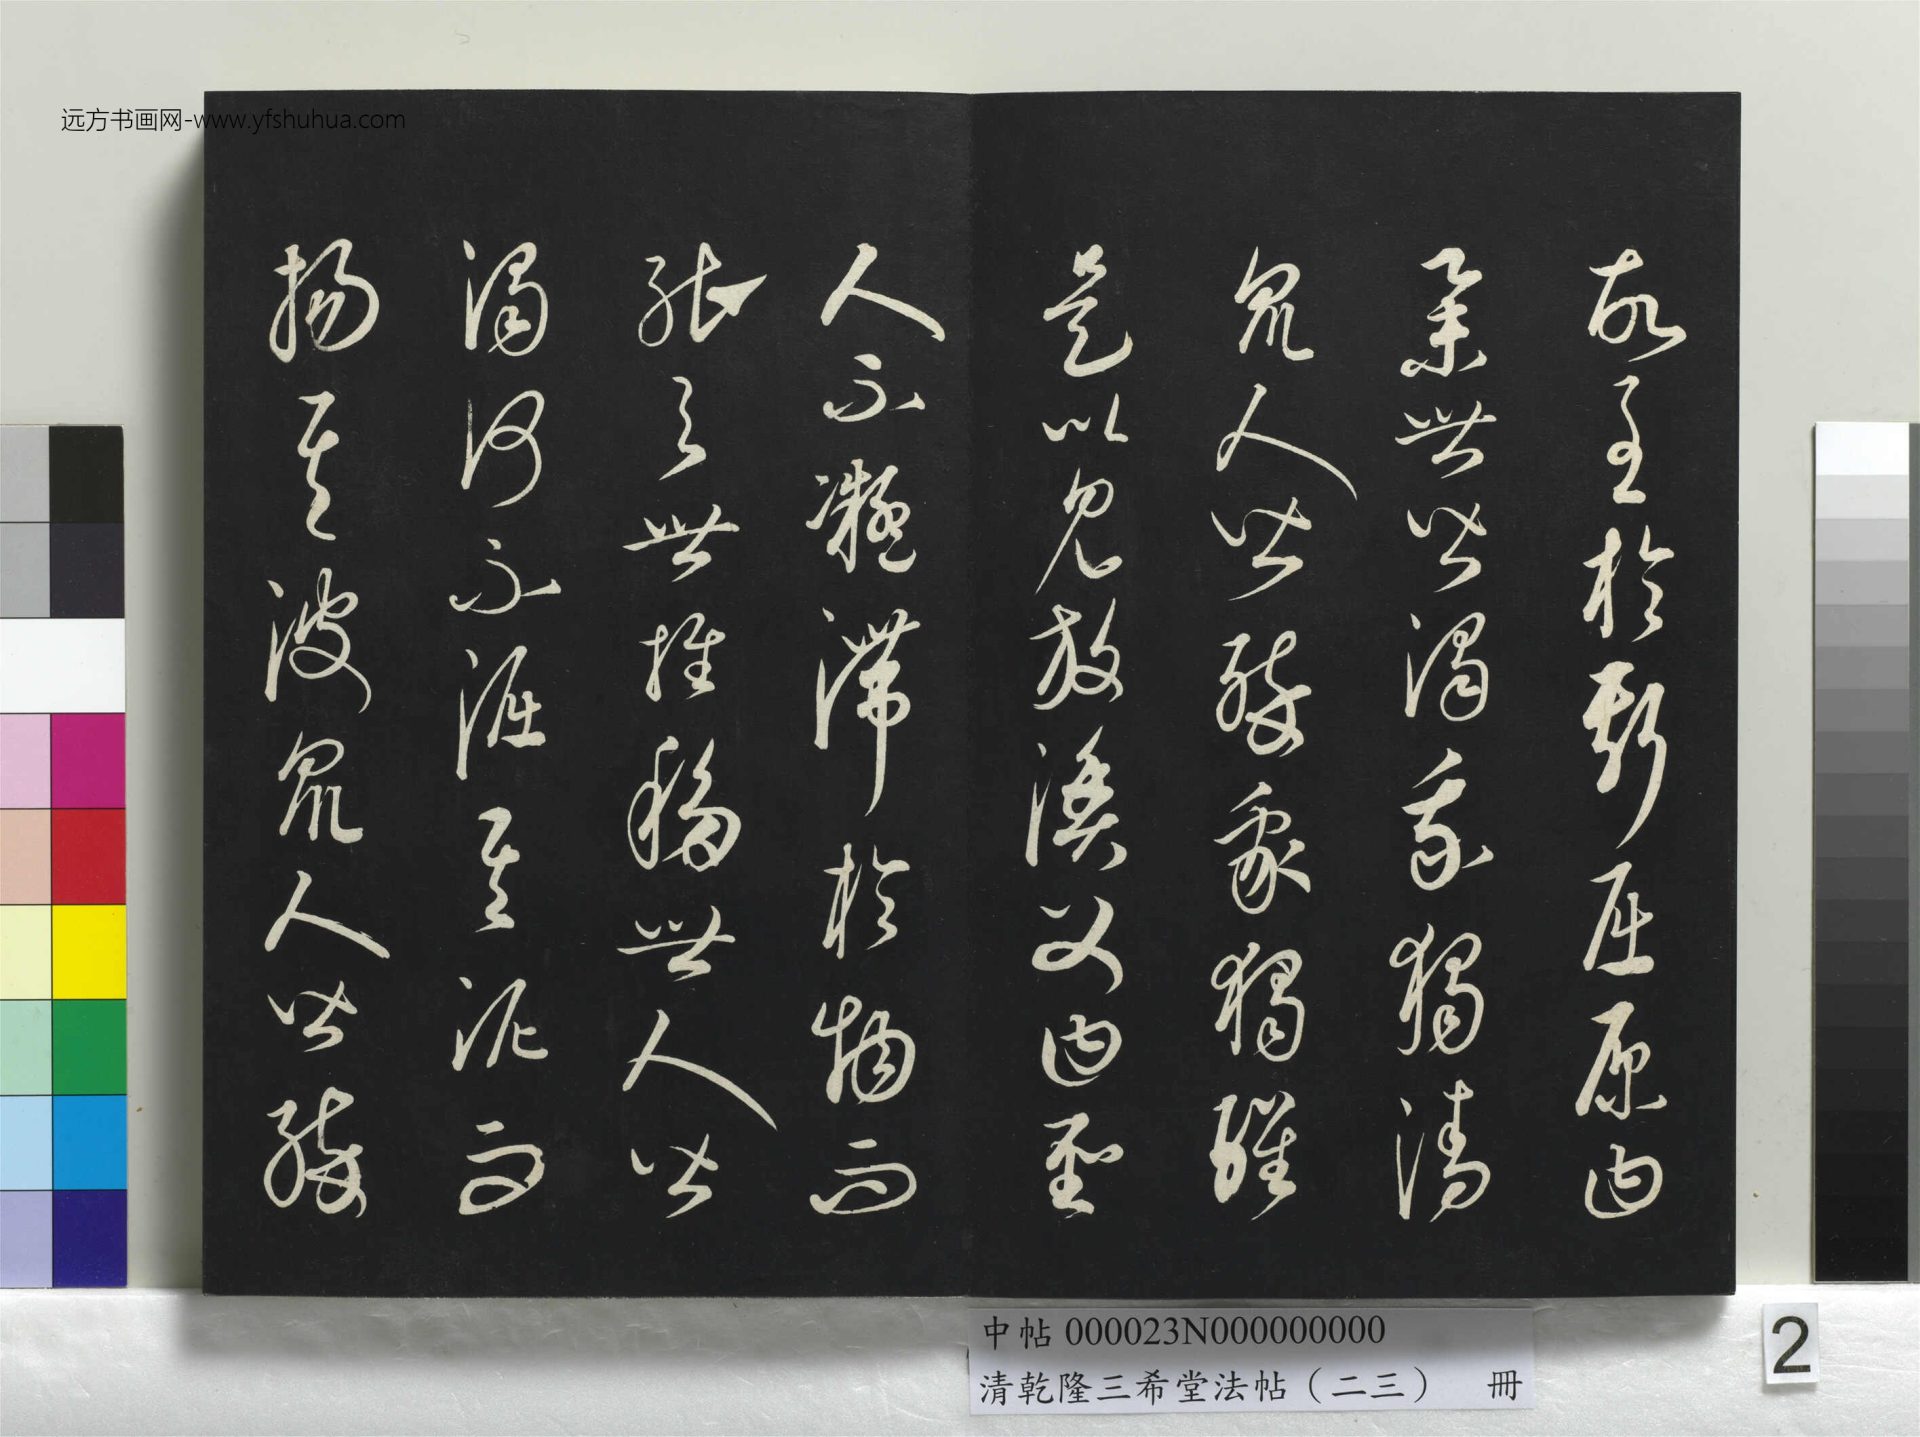 远方书画网-www.yfshuhua.com
故至於斯屈原曰
舉世皆濁我獨清
衆人皆醉我獨醒
是以見放漁父曰聖
人不凝滯於物而
能與世推移世人皆
濁何不淈其泥而
揚其波衆人皆醉
中帖 000023N000000000
清乾隆三希堂法帖（二三） 冊
2